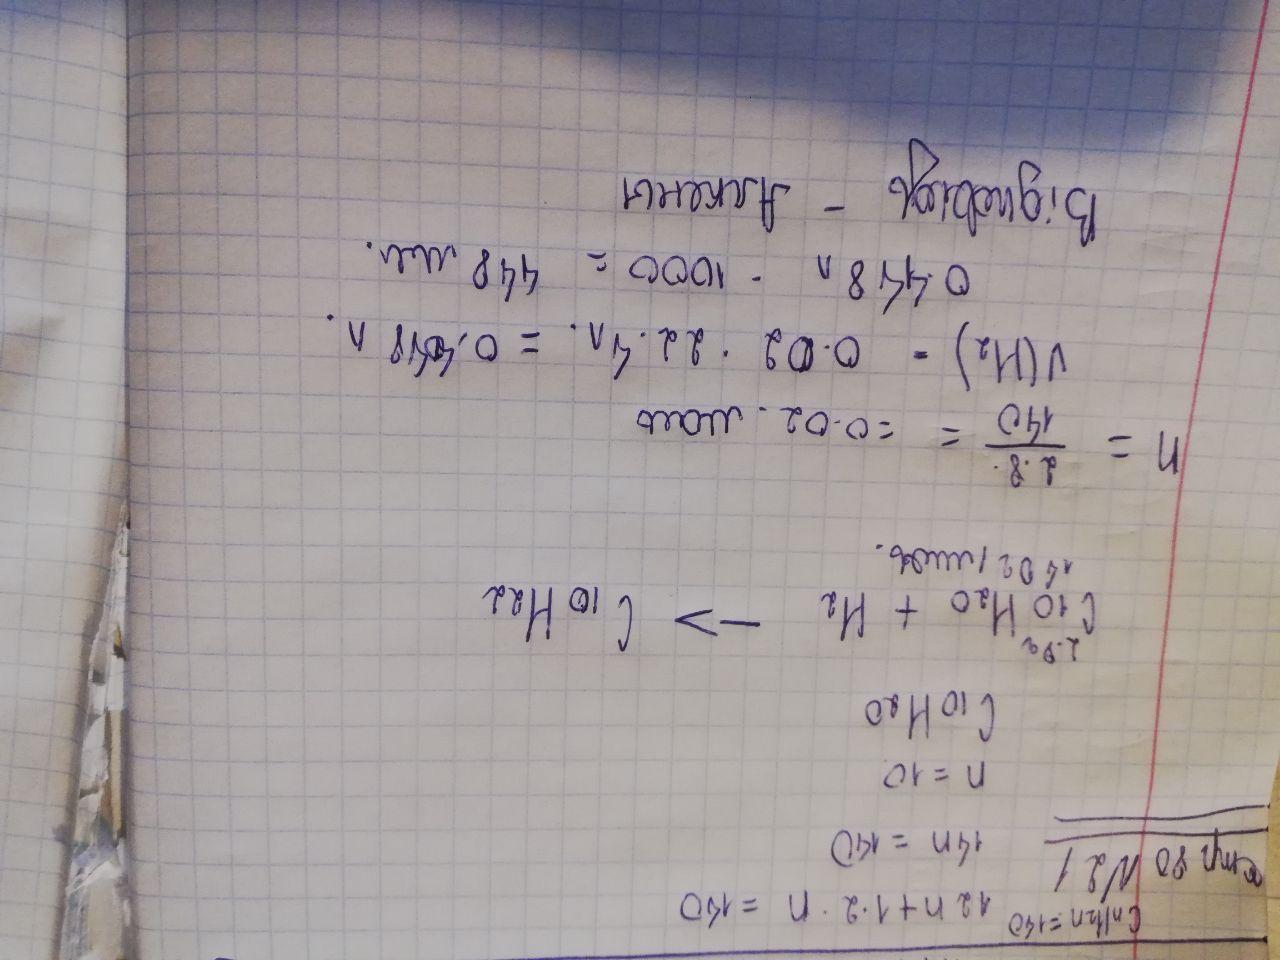 CnH2n=140 12n+1·2·n=140
стр 80 №21 14n=140
n=10
C10H20
2.8г
C10H20 + H2 —> C10H22
140г/моль.
n = 2.8. / 140 = =0.02.моль
V(H2) - 0.02 · 22.4л. = 0.448л.
0.448л · 1000 = 448 мл.
Відповідь - Алкены